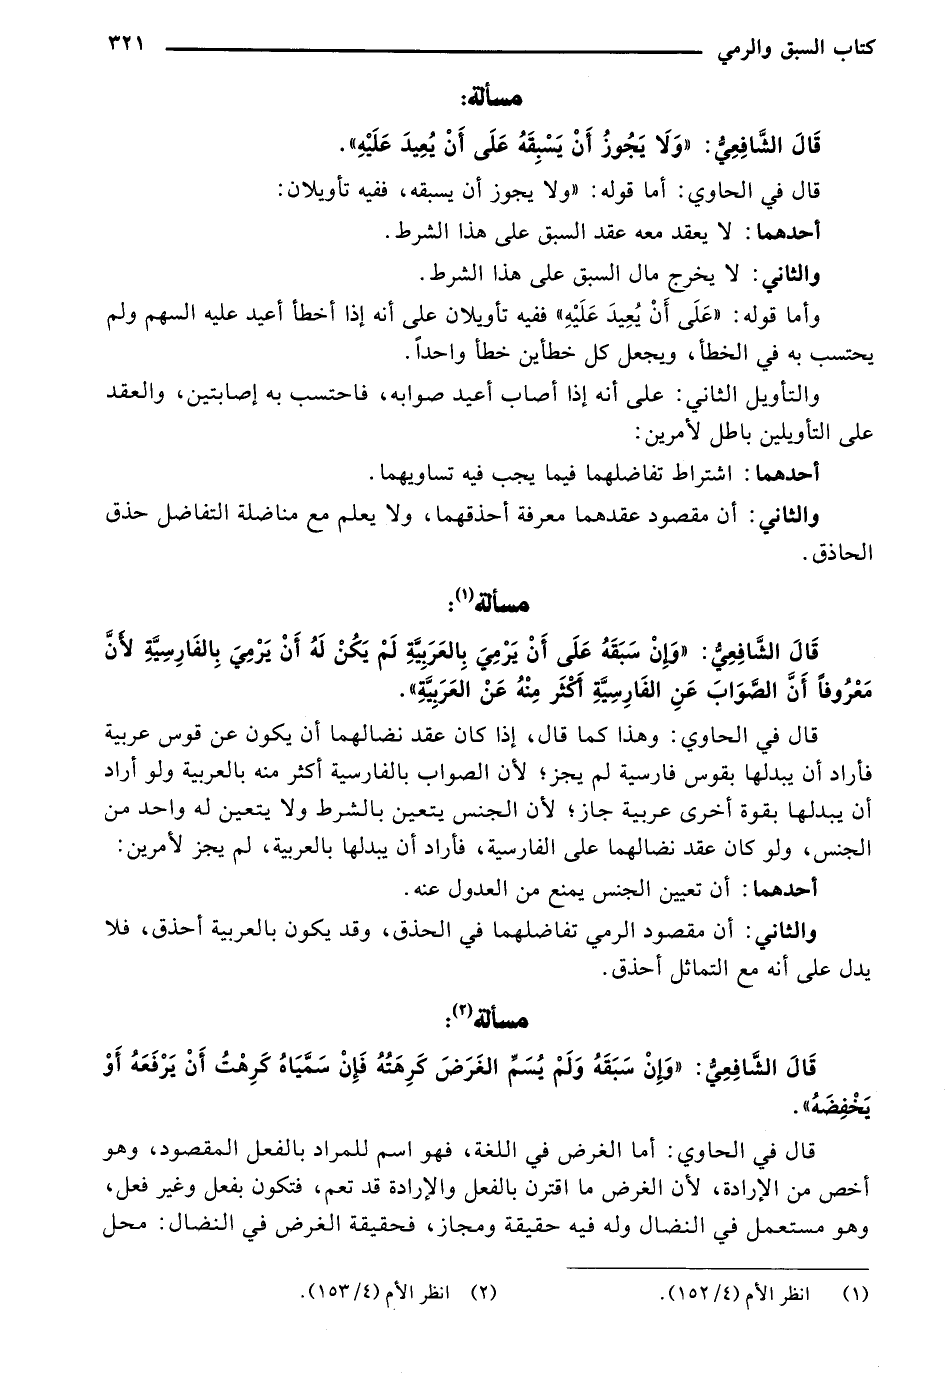 كتاب السبق والرمي ٣٢١
مسألة:
قَالَ الشَّافِعِيُّ: «وَلَا يَجُوزُ أَنْ يَسْبِقَهُ عَلَى أَنْ يُعِيدَ عَلَيْهِ».
قال في الحاوي: أما قوله: «ولا يجوز أن يسبقه، ففيه تأويلان:
أحدهما: لا يعقد معه عقد السبق على هذا الشرط.
والثاني: لا يخرج مال السبق على هذا الشرط.
وأما قوله: «عَلَى أَنْ يُعِيدَ عَلَيْهِ» ففيه تأويلان على أنه إذا أخطأ أعيد عليه السهم ولم
يحتسب به في الخطأ، ويجعل كل خطأين خطأ واحداً.
والتأويل الثاني: على أنه إذا أصاب أعيد صوابه، فاحتسب به إصابتين، والعقد
على التأويلين باطل لأمرين:
أحدهما: اشتراط تفاضلهما فيما يجب فيه تساويهما.
والثاني: أن مقصود عقدهما معرفة أحذقهما، ولا يعلم مع مناضلة التفاضل حذق
الحاذق.
مسألة(١):
قَالَ الشَّافِعِيُّ: «وَإِنْ سَبَقَهُ عَلَى أَنْ يَرْمِيَ بِالعَرَبِيَّةِ لَمْ يَكُنْ لَهُ أَنْ يَرْمِيَ بِالفَارِسِيَّةِ لأَنَّ
مَعْرُوفاً أَنَّ الصَّوَابَ عَنِ الفَارِسِيَّةِ أَكْثَر مِنْهُ عَنْ العَرَبِيَّةِ».
قال في الحاوي: وهذا كما قال، إذا كان عقد نضالهما أن يكون عن قوس عربية
فأراد أن يبدلها بقوس فارسية لم يجز؛ لأن الصواب بالفارسية أكثر منه بالعربية ولو أراد
أن يبدلها بقوة أخرى عربية جاز؛ لأن الجنس يتعين بالشرط ولا يتعين له واحد من
الجنس، ولو كان عقد نضالهما على الفارسية، فأراد أن يبدلها بالعربية، لم يجز لأمرين:
أحدهما: أن تعيين الجنس يمنع من العدول عنه.
والثاني: أن مقصود الرمي تفاضلهما في الحذق، وقد يكون بالعربية أحذق، فلا
يدل على أنه مع التماثل أحذق.
مسألة(٢):
قَالَ الشَّافِعِيُّ: «وَإِنْ سَبَقَهُ وَلَمْ يُسَمِّ الغَرَضَ كَرِهَتُهُ فَإِنْ سَمَّيَاهُ كَرِهْتُ أَنْ يَرْفَعَهُ أَوْ
يَخْفِضَهُ».
قال في الحاوي: أما الغرض في اللغة، فهو اسم للمراد بالفعل المقصود، وهو
أخص من الإرادة، لأن الغرض ما اقترن بالفعل والإرادة قد تعم، فتكون بفعل وغير فعل،
وهو مستعمل في النضال وله فيه حقيقة ومجاز، فحقيقة الغرض في النضال: محل
(١) انظر الأم (٤/ ١٥٢). (٢) انظر الأم (٤/ ١٥٣).